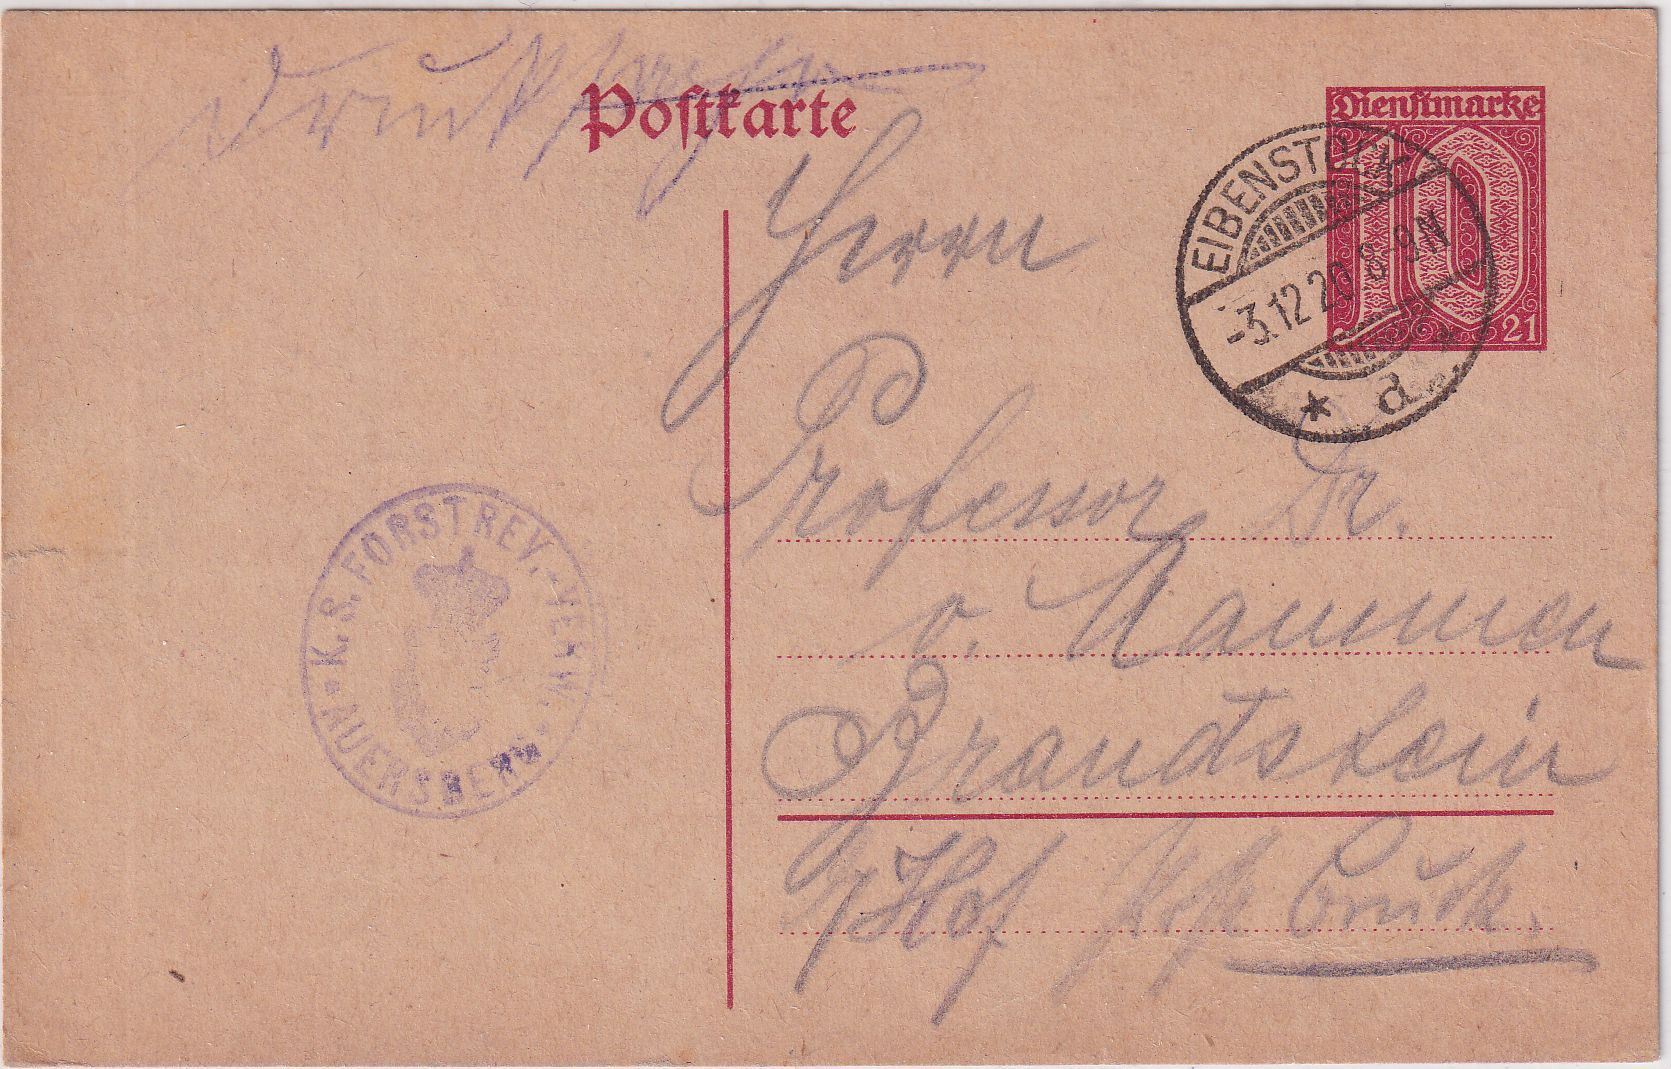 Drucksache
Postkarte
Dienstmarke
10
21
EIBENSTOCK
-3.12.20 8-9N
* d
Herrn
Professor Dr.
v. Mammen
Brandstein
b/ Hof Post Bruck.
K. S. FORSTREV.-VERW.
AUERSBERG